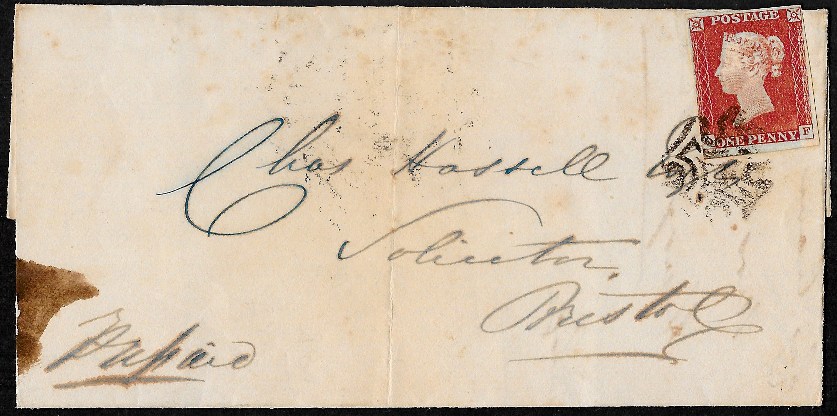 POSTAGE
ONE PENNY F
Chas Hassell Esq
Solicitor,
Bristol
Prepaid